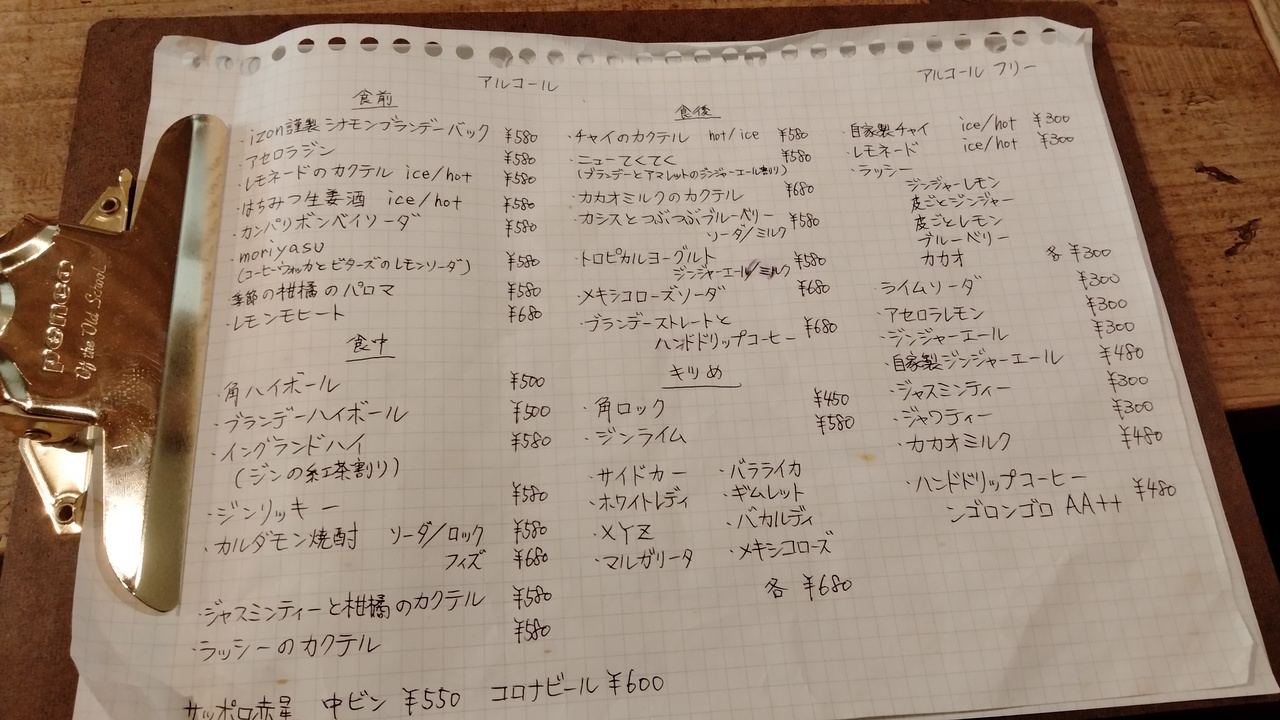 アルコール
食前
・izon謹製シナモンブランデーバック ¥580
・アセロラジン ¥580
・レモネードのカクテル ice/hot ¥580
・はちみつ生姜酒 ice/hot ¥580
・カンパリボンベイソーダ ¥580
・moriyasu
(コーヒーウォッカとビターズのレモンソーダ) ¥580
・季節の柑橘のパロマ ¥580
・レモンモヒート ¥680
食中
・角ハイボール ¥500
・ブランデーハイボール ¥500
・イングランドハイ ¥580
(ジンの紅茶割り)
・ジンリッキー ¥580
・カルダモン焼酎 ソーダ/ロック ¥580
フィズ ¥680
・ジャスミンティーと柑橘のカクテル ¥580
・ラッシーのカクテル ¥580
サッポロ赤星 中ビン ¥550 コロナビール ¥600
食後
・チャイのカクテル hot/ice ¥580
・ニューてくてく ¥580
(ブランデーとアマレットのジンジャーエール割り)
・カカオミルクのカクテル ¥680
・カシスとつぶつぶブルーベリー ¥580
ソーダ/ミルク
・トロピカルヨーグルト ¥580
ジンジャーエール/ミルク
・メキシコローズソーダ ¥680
・ブランデーストレートと ¥680
ハンドドリップコーヒー
キツめ
・角ロック ¥450
・ジンライム ¥580
・サイドカー ・バラライカ
・ホワイトレディ ・ギムレット
・XYZ ・バカルディ
・マルガリータ ・メキシコローズ
各 ¥680
アルコール フリー
・自家製チャイ ice/hot ¥300
・レモネード ice/hot ¥300
・ラッシー
ジンジャーレモン
皮ごとジンジャー
皮ごとレモン
ブルーベリー
カカオ 各 ¥300
・ライムソーダ ¥300
・アセロラレモン ¥300
・ジンジャーエール ¥300
・自家製ジンジャーエール ¥480
・ジャスミンティー ¥300
・ジャワティー ¥300
・カカオミルク ¥480
・ハンドドリップコーヒー ¥480
ンゴロンゴロ AA++
penco
Of the Old School